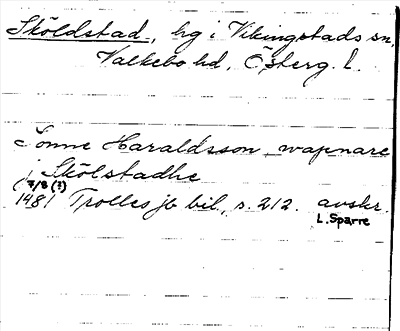 Sköldstad, hg i Vikingstads sn,
Valkebo hd, Österg. l.
Sonne Haraldsson, wapnare
i Skölstadhe
7/8 (?)
1481 Trolles jb bil, s. 212. avskr.
L. Sparre